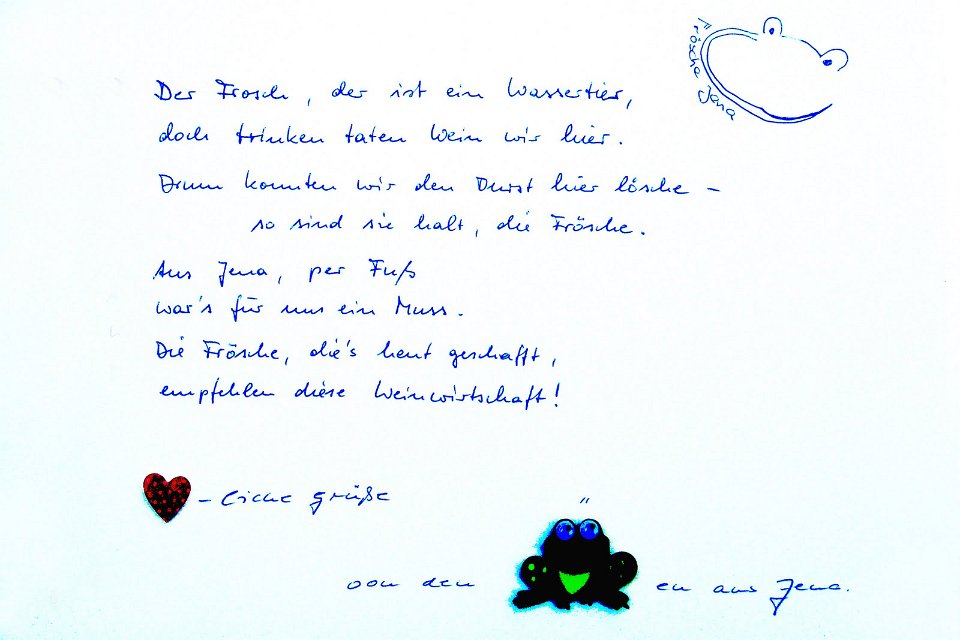 Frösche Jena
Der Frosch, der ist ein Wassertier,
doch trinken taten Wein wir hier.
Drum konnten wir den Durst hier lösche –
so sind sie halt, die Frösche.
Aus Jena, per Fuß
war's für uns ein Muss.
Die Frösche, die's heut geschafft,
empfehlen diese Weinwirtschaft!
– liche Grüße
von den " en aus Jena.